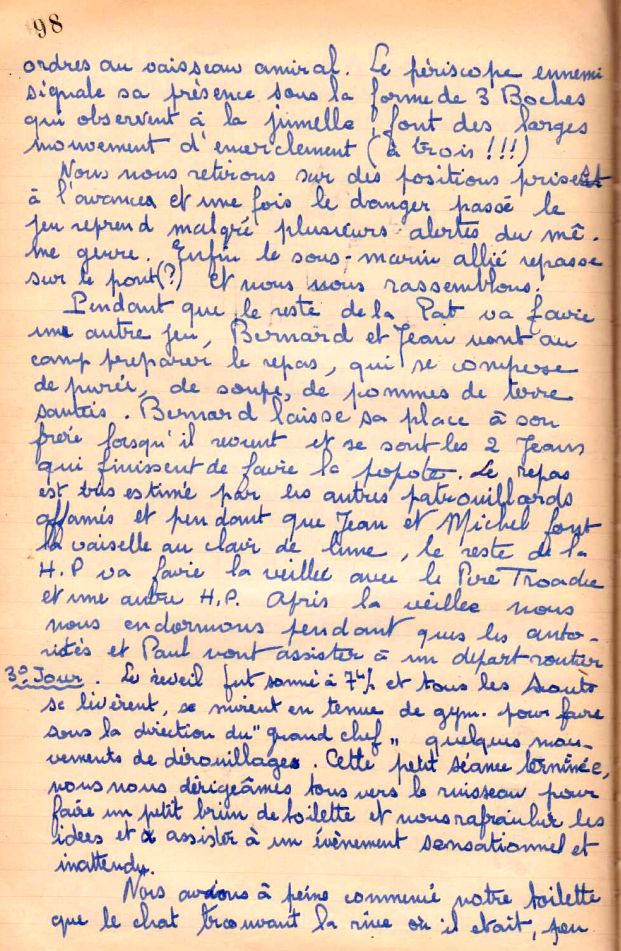 98
ordres au vaisseau amiral. Le périscope ennemi
signale sa présence sous la forme de 3 Boches
qui observent à la jumelle, font des larges
mouvement d'encerclement (à trois !!!)
Nous nous retirons sur des positions prises
à l'avance et une fois le danger passé le
jeu reprend malgré plusieurs alertes du mê-
me genre. Enfin le sous-marin allié repasse
sur le pont (?) et nous nous rassemblons.
Pendant que le reste de la Pat va faire
une autre jeu, Bernard et Jean vont au
camp preparer le repas, qui se compose
de purée, de soupe, de pommes de terre
sautés. Bernard laisse sa place à son
frère lorsqu'il revient et se sont les 2 Jeans
qui finissent de faire la popote. Le repas
est très estimé par les autres patrouillards
affamés et pendant que Jean et Michel font
la vaiselle au clair de lune, le reste de la
H.P va faire la veillée avec le Père Troadec
et une autre H.P. Après la veillée nous
nous endormons pendant que les auto-
risés et Paul vont assister à un départ routier
3º Jour. Le réveil fut sonné à 7h½ et tous les Scouts
se livèrent, se mirent en tenue de gym. pour faire
sous la direction du "grand chef" quelques mou-
vements de dérouillages. Cette petit séance terminée,
nous nous dérigeâmes tous vers le ruisseau pour
faire un petit brin de toilette et nous rafraichir les
idées et à assister à un évènement sensationnel et
inattendu.
Nous avions à peine commencé notre toilette
que le chat trouvant la rive où il etait, peu